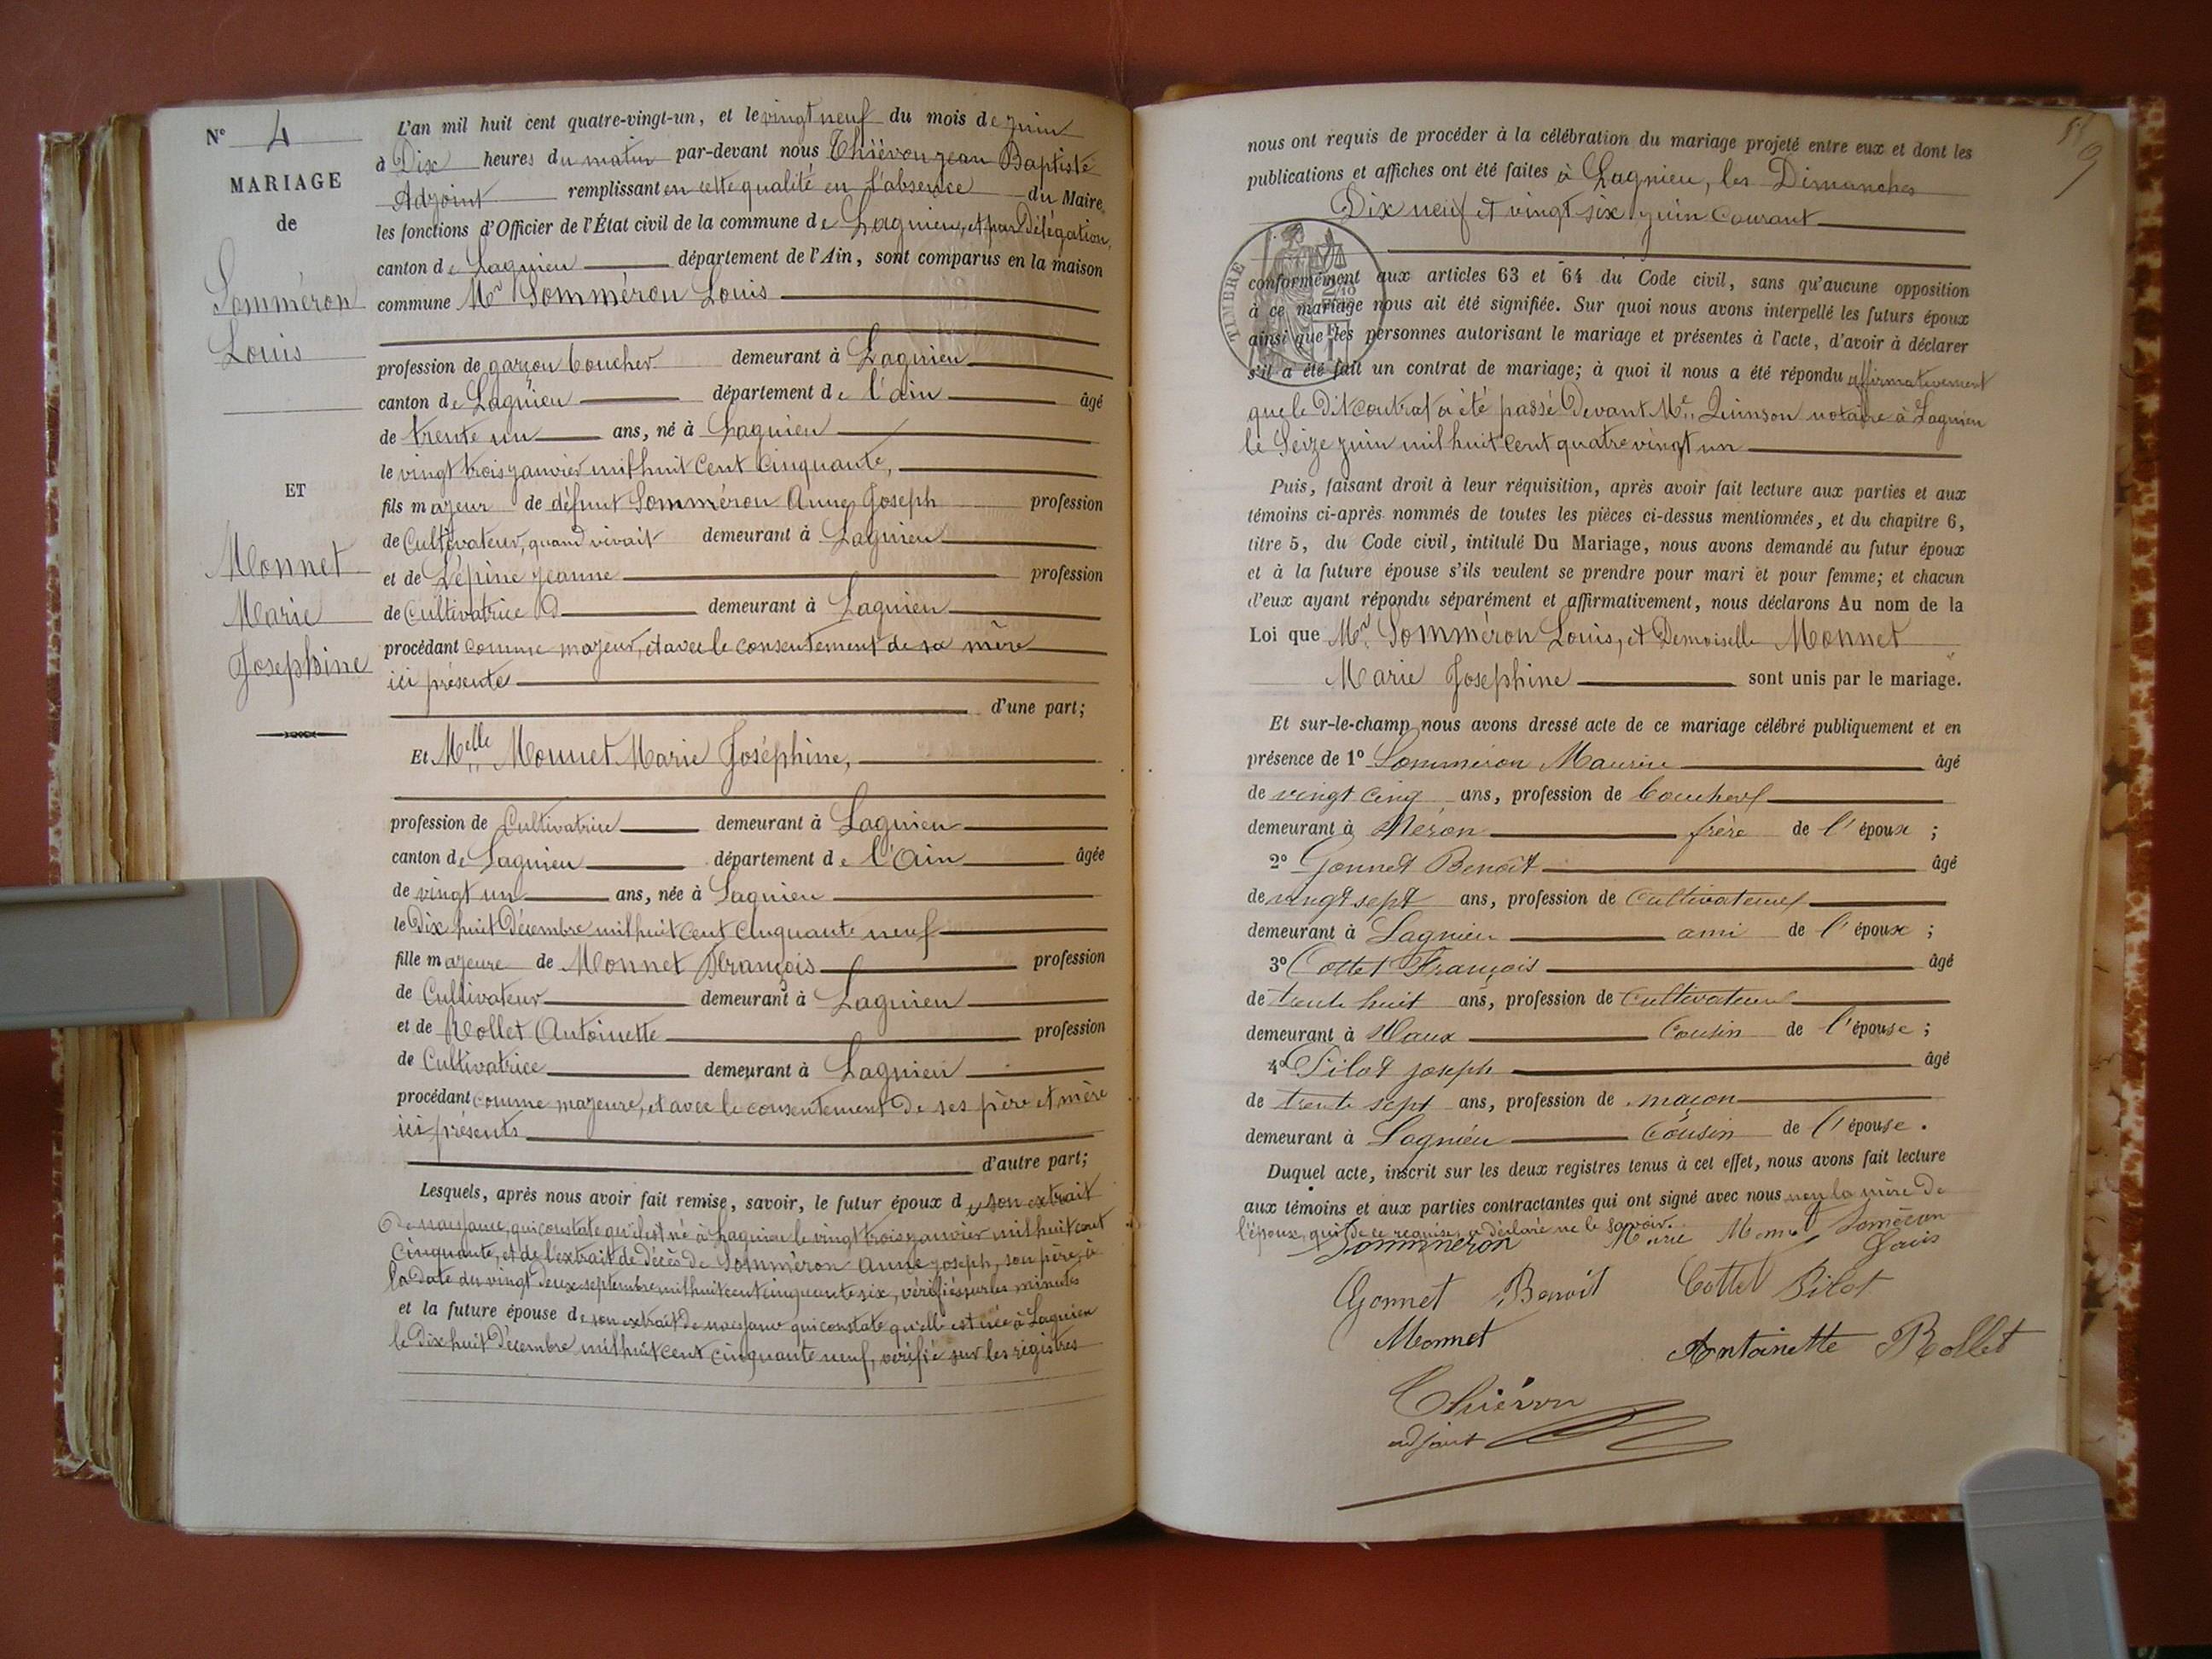 N° 4
MARIAGE
de
Somméron
Louis
ET
Monnet
Marie
Josephine
L'an mil huit cent quatre-vingt-un, et le vingt neuf du mois de juin
à Dix heures du matin par-devant nous Thiévon jean Baptiste
Adjoint remplissant en cette qualité en l'absence du Maire
les fonctions d'Officier de l'État civil de la commune de Lagnieu, et par Délégation,
canton de Lagnieu département de l'Ain, sont comparus en la maison
commune Mr Somméron Louis
profession de garçon boucher demeurant à Lagnieu
canton de Lagnieu département de l'ain âgé
de trente un ans, né à Lagnieu
le vingt trois janvier mil huit Cent Cinquante,
fils majeur de défunt Somméron Anne Joseph profession
de Cultivateur, quand vivait demeurant à Lagnieu
et de Lépine jeanne profession
de Cultivatrice demeurant à Lagnieu
procédant comme majeur, et avec le consentement de sa mère
ici présente
d'une part;
Et Melle Monnet Marie Joséphine,
profession de Cultivatrice demeurant à Lagnieu
canton de Lagnieu département de l'Ain âgée
de vingt un ans, née à Lagnieu
le Dix huit Décembre mil huit cent cinquante neuf
fille majeure de Monnet François profession
de Cultivateur demeurant à Lagnieu
et de Rollet Antoinette profession
de Cultivatrice demeurant à Lagnieu
procédant comme majeure, et avec le consentement de ses père et mère
ici présents
d'autre part;
Lesquels, après nous avoir fait remise, savoir, le futur époux de son extrait
De naissance, qui constate qu'il est né à Lagnieu le vingt trois janvier mil huit cent
Cinquante, et de l'extrait de décès de Somméron Anne joseph, son père, à
la date du vingt deux septembre mil huit cent cinquante six, vérifiés sur les minutes
et la future épouse de son extrait de naissance qui constate qu'elle est née à Lagnieu
le Dix huit Décembre mil huit cent cinquante neuf, vérifié sur les registres
9
nous ont requis de procéder à la célébration du mariage projeté entre eux et dont les
publications et affiches ont été faites à Lagnieu, les Dimanches
Dix neuf et vingt six juin Courant
TIMBRE
conformément aux articles 63 et 64 du Code civil, sans qu'aucune opposition
à ce mariage nous ait été signifiée. Sur quoi nous avons interpellé les futurs époux
ainsi que les personnes autorisant le mariage et présentes à l'acte, d'avoir à déclarer
s'il a été fait un contrat de mariage; à quoi il nous a été répondu affirmativement
que le Dit contrat a été passé Devant Me Quinson notaire à Lagnieu
le Seize juin mil huit Cent quatre vingt un
Puis, faisant droit à leur réquisition, après avoir fait lecture aux parties et aux
témoins ci-après nommés de toutes les pièces ci-dessus mentionnées, et du chapitre 6,
titre 5, du Code civil, intitulé Du Mariage, nous avons demandé au futur époux
et à la future épouse s'ils veulent se prendre pour mari et pour femme; et chacun
d'eux ayant répondu séparément et affirmativement, nous déclarons Au nom de la
Loi que Mr Somméron Louis, et Demoiselle Monnet
Marie Josephine sont unis par le mariage.
Et sur-le-champ nous avons dressé acte de ce mariage célébré publiquement et en
présence de 1° Somméron Maurice âgé
de vingt cinq ans, profession de boucher
demeurant à frère de l'époux ;
2° Gonnet Benoît âgé
de vingt sept ans, profession de Cultivateur
demeurant à Lagnieu ami de l'époux ;
3° Cottet François âgé
de trente huit ans, profession de Cultivateur
demeurant à Vaux Cousin de l'épouse ;
4° Pilot joseph âgé
de trente sept ans, profession de maçon
demeurant à Lagnieu Cousin de l'épouse.
Duquel acte, inscrit sur les deux registres tenus à cet effet, nous avons fait lecture
aux témoins et aux parties contractantes qui ont signé avec nous non la mère de
l'époux, qui de ce requise, a déclaré ne le savoir.
Sommneron Marie Monnet Soméron
Louis
Gonnet Benoit Cottet Pilot
Monnet Antoinette Rollet
Thiévon
adjoint